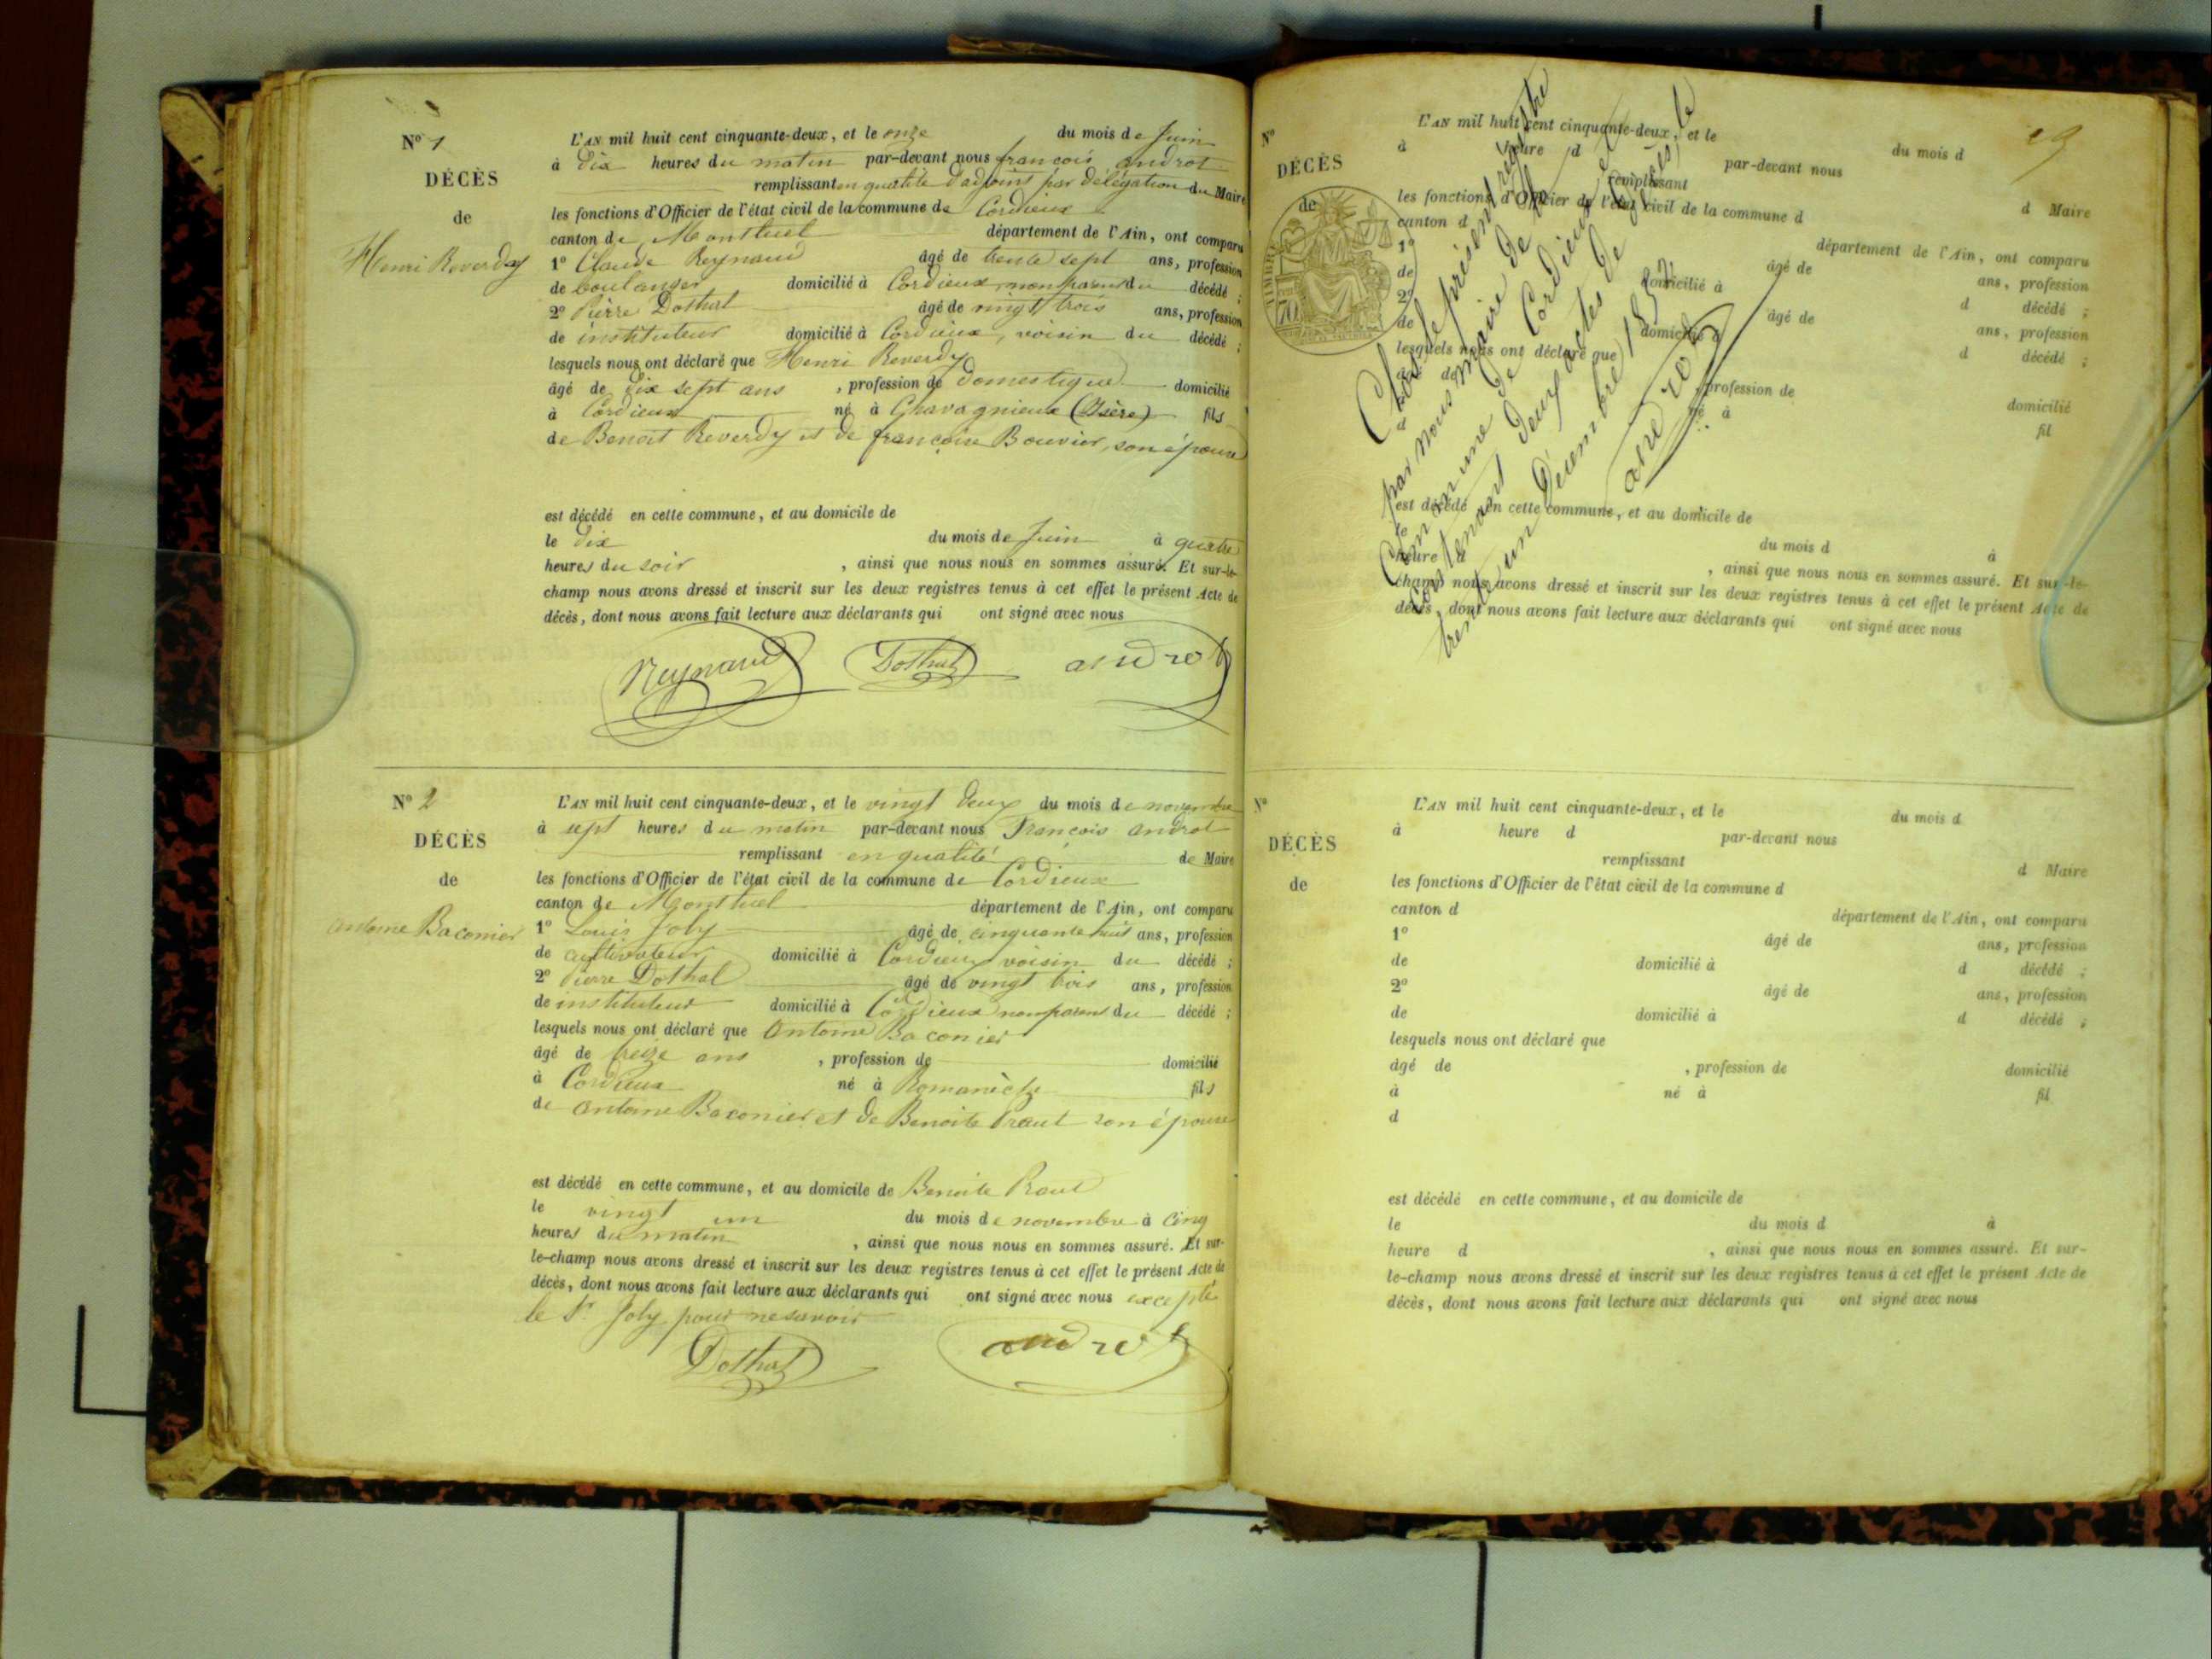 N° 1
DÉCÈS
de
Henri Reverdy
L'AN mil huit cent cinquante-deux, et le onze du mois de Juin
à dix heures du matin par-devant nous françois androt
remplissant en qualité d'adjoint par délégation du Maire
les fonctions d'Officier de l'état civil de la commune de Cordieux
canton de Montluel département de l'Ain, ont comparu
1° Claude Reynaud âgé de trente sept ans, profession
de boulanger domicilié à Cordieux, non parent du décédé ;
2° Pierre Dothal âgé de vingt trois ans, profession
de instituteur domicilié à Cordieux, voisin du décédé ;
lesquels nous ont déclaré que Henri Reverdy
âgé de dix sept ans , profession de domestique domicilié
à Cordieux né à Chavagnieux (Isère) fils
de Benoit Reverdy et de françoise Bouvier, son épouse
est décédé en cette commune, et au domicile de
le dix du mois de Juin à quatre
heures du soir , ainsi que nous nous en sommes assuré. Et sur-le-
champ nous avons dressé et inscrit sur les deux registres tenus à cet effet le présent Acte de
décès, dont nous avons fait lecture aux déclarants qui ont signé avec nous
Reynaud Dothal androt
N° 2
DÉCÈS
de
antoine Baconier
L'AN mil huit cent cinquante-deux, et le vingt deux du mois de novembre
à sept heures du matin par-devant nous François androt
remplissant en qualité de Maire
les fonctions d'Officier de l'état civil de la commune de Cordieux
canton de Montluel département de l'Ain, ont comparu
1° Louis Joly âgé de cinquante huit ans, profession
de cultivateur domicilié à Cordieux voisin du décédé ;
2° Pierre Dothal âgé de vingt trois ans, profession
de instituteur domicilié à Cordieux non parent du décédé ;
lesquels nous ont déclaré que antoine Baconier
âgé de treize ans , profession de domicilié
à Cordieux né à Romanèche fils
de antoine Baconier et de Benoite Praut son épouse
est décédé en cette commune, et au domicile de Benoite Praut
le vingt un du mois de novembre à cinq
heures du matin , ainsi que nous nous en sommes assuré. Et sur-
le-champ nous avons dressé et inscrit sur les deux registres tenus à cet effet le présent Acte de
décès, dont nous avons fait lecture aux déclarants qui ont signé avec nous excepté
le Sr Joly pour ne savoir
Dothal androt
29
N°
DÉCÈS
de
TIMBRE
70
L'AN mil huit cent cinquante-deux, et le du mois d
à heure d par-devant nous
remplissant d Maire
les fonctions d'Officier de l'état civil de la commune d
canton d département de l'Ain, ont comparu
1° âgé de ans, profession
de domicilié à d décédé ;
2° âgé de ans, profession
de domicilié à d décédé ;
lesquels nous ont déclaré que
âgé de , profession de domicilié
à né à fil
d
est décédé en cette commune, et au domicile de
le du mois d à
heure d , ainsi que nous nous en sommes assuré. Et sur-le-
champ nous avons dressé et inscrit sur les deux registres tenus à cet effet le présent Acte de
décès, dont nous avons fait lecture aux déclarants qui ont signé avec nous
Clos le présent registre
par nous maire de la
Commune de Cordieux et
contenant deux actes de décès, le
trente un Décembre 1852
androt
N°
DÉCÈS
de
L'AN mil huit cent cinquante-deux, et le du mois d
à heure d par-devant nous
remplissant d Maire
les fonctions d'Officier de l'état civil de la commune d
canton d département de l'Ain, ont comparu
1° âgé de ans, profession
de domicilié à d décédé ;
2° âgé de ans, profession
de domicilié à d décédé ;
lesquels nous ont déclaré que
âgé de , profession de domicilié
à né à fil
d
est décédé en cette commune, et au domicile de
le du mois d à
heure d , ainsi que nous nous en sommes assuré. Et sur-
le-champ nous avons dressé et inscrit sur les deux registres tenus à cet effet le présent Acte de
décès, dont nous avons fait lecture aux déclarants qui ont signé avec nous